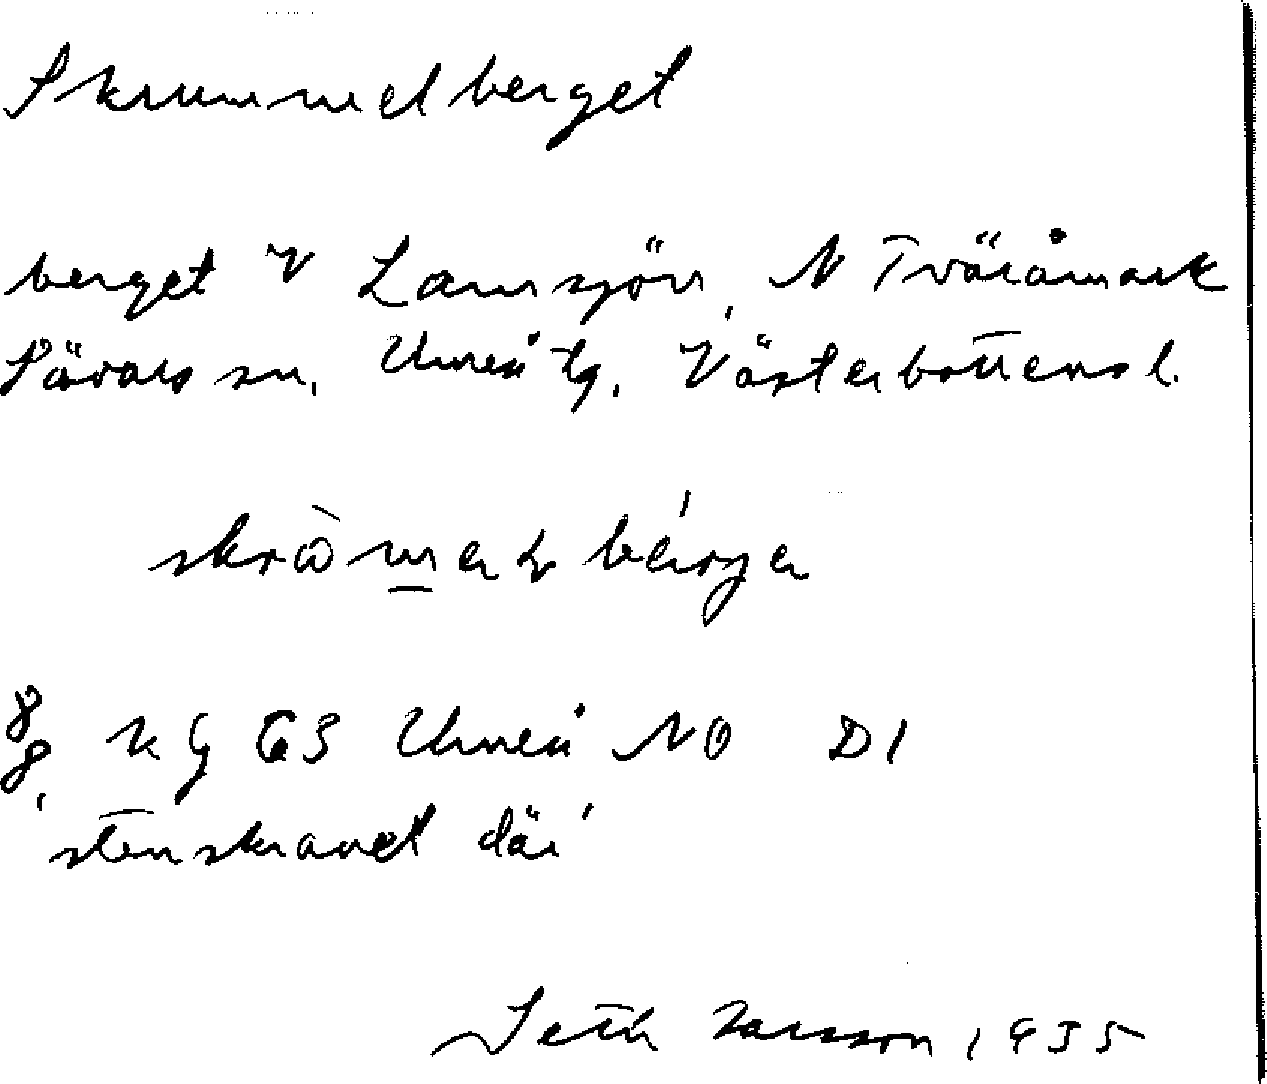 Skrummelberget
berget V Lamsjön, N Tväråmark
Sävars sn. Umeå tg. Västerbottens l.
bärjɐ
Umeå NO D1
'stenskravel där'
Seth Larsson 1935